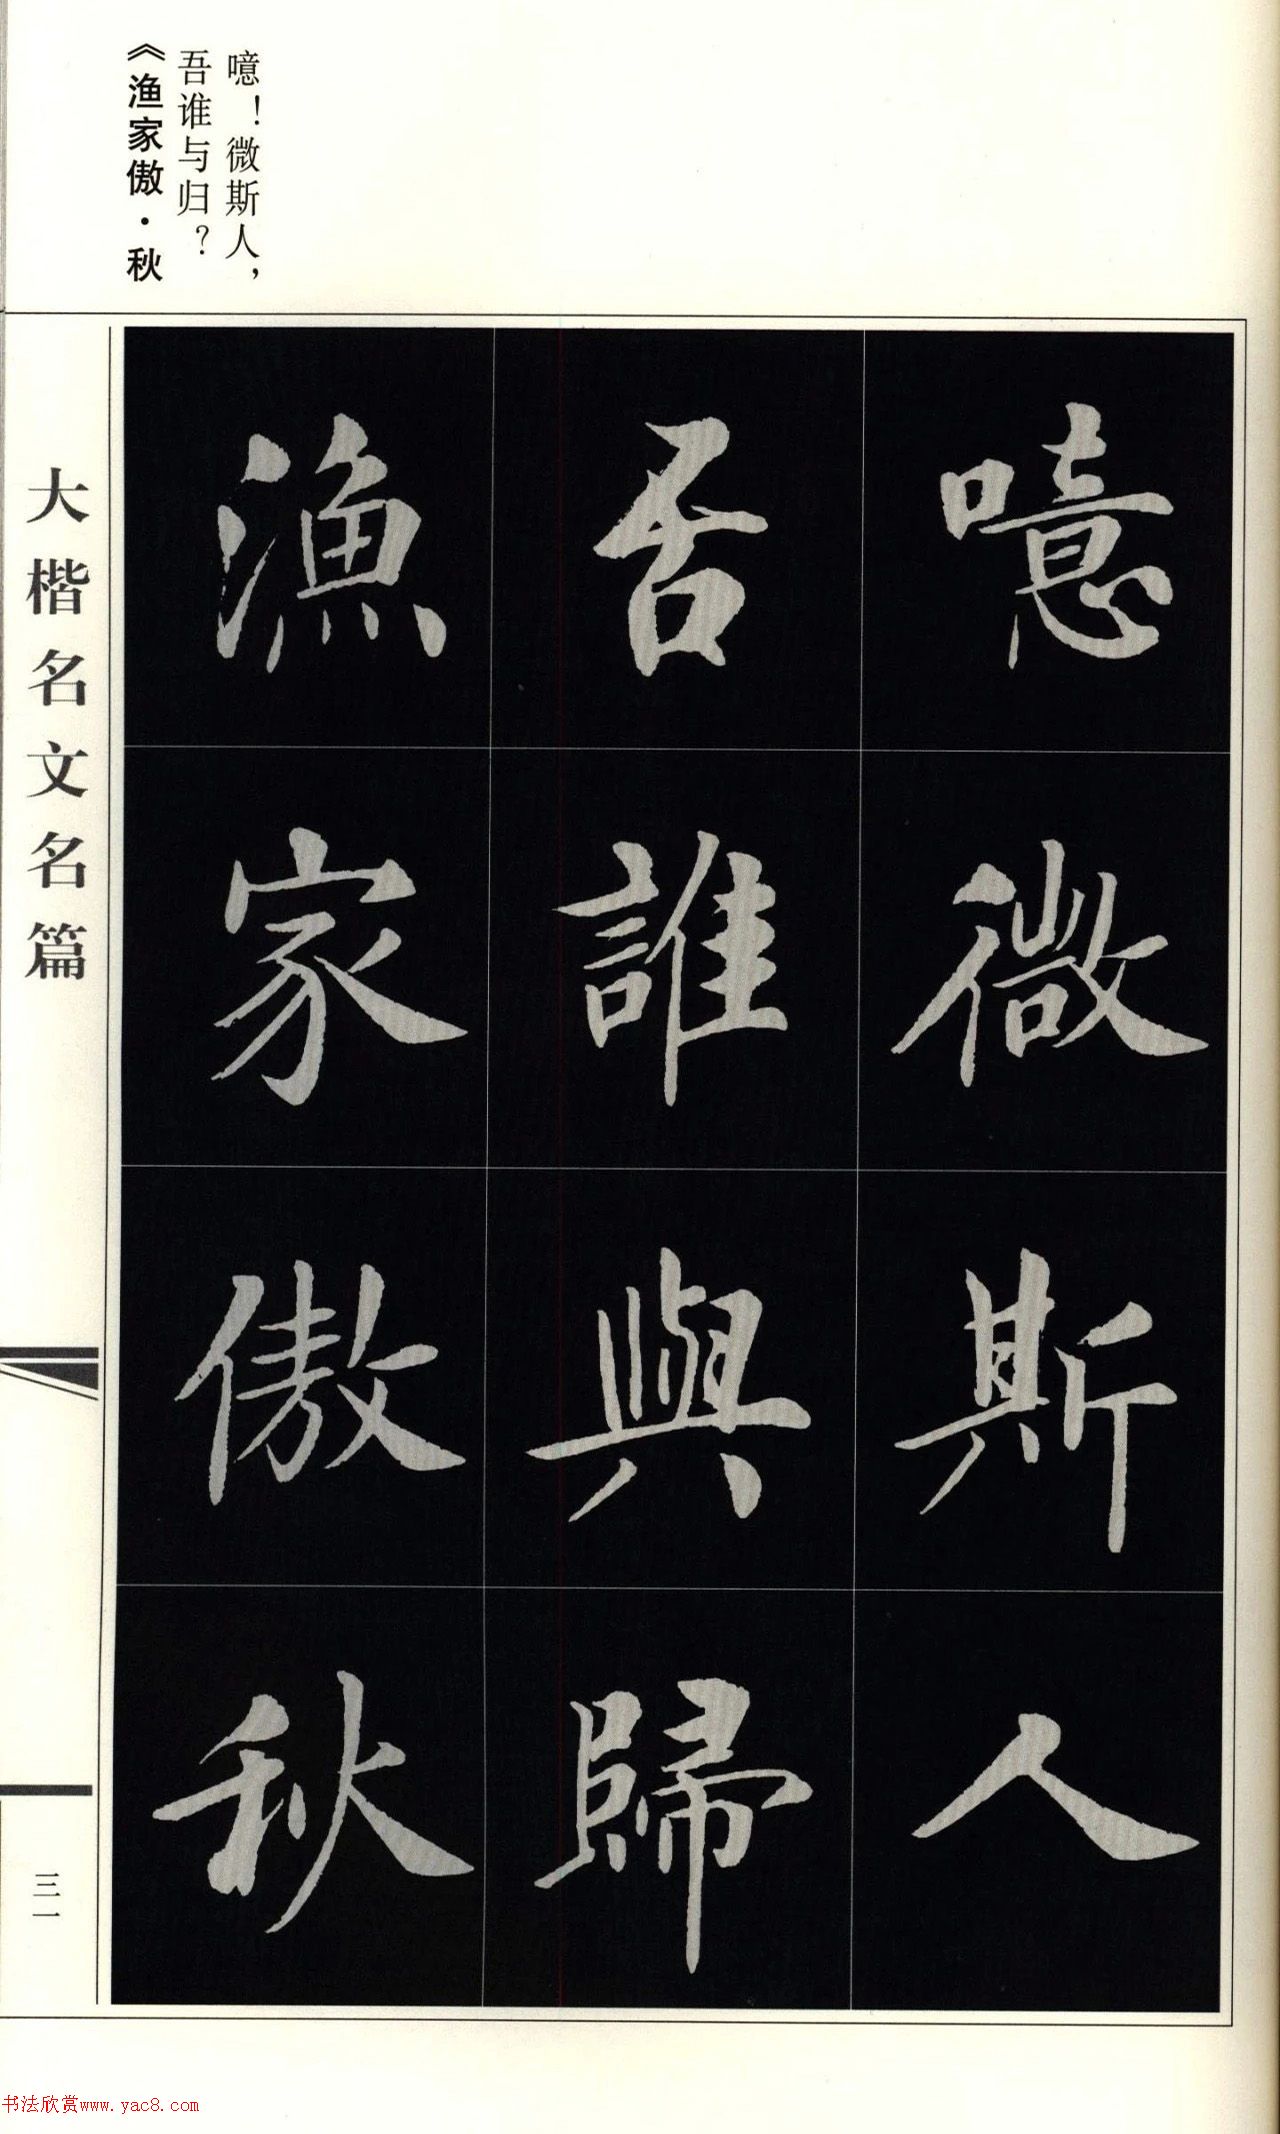 噫！微斯人，
吾谁与归？
《渔家傲·秋
噫微斯人
吾誰與歸
漁家傲秋
大楷名文名篇
三一
书法欣赏www.yac8.com